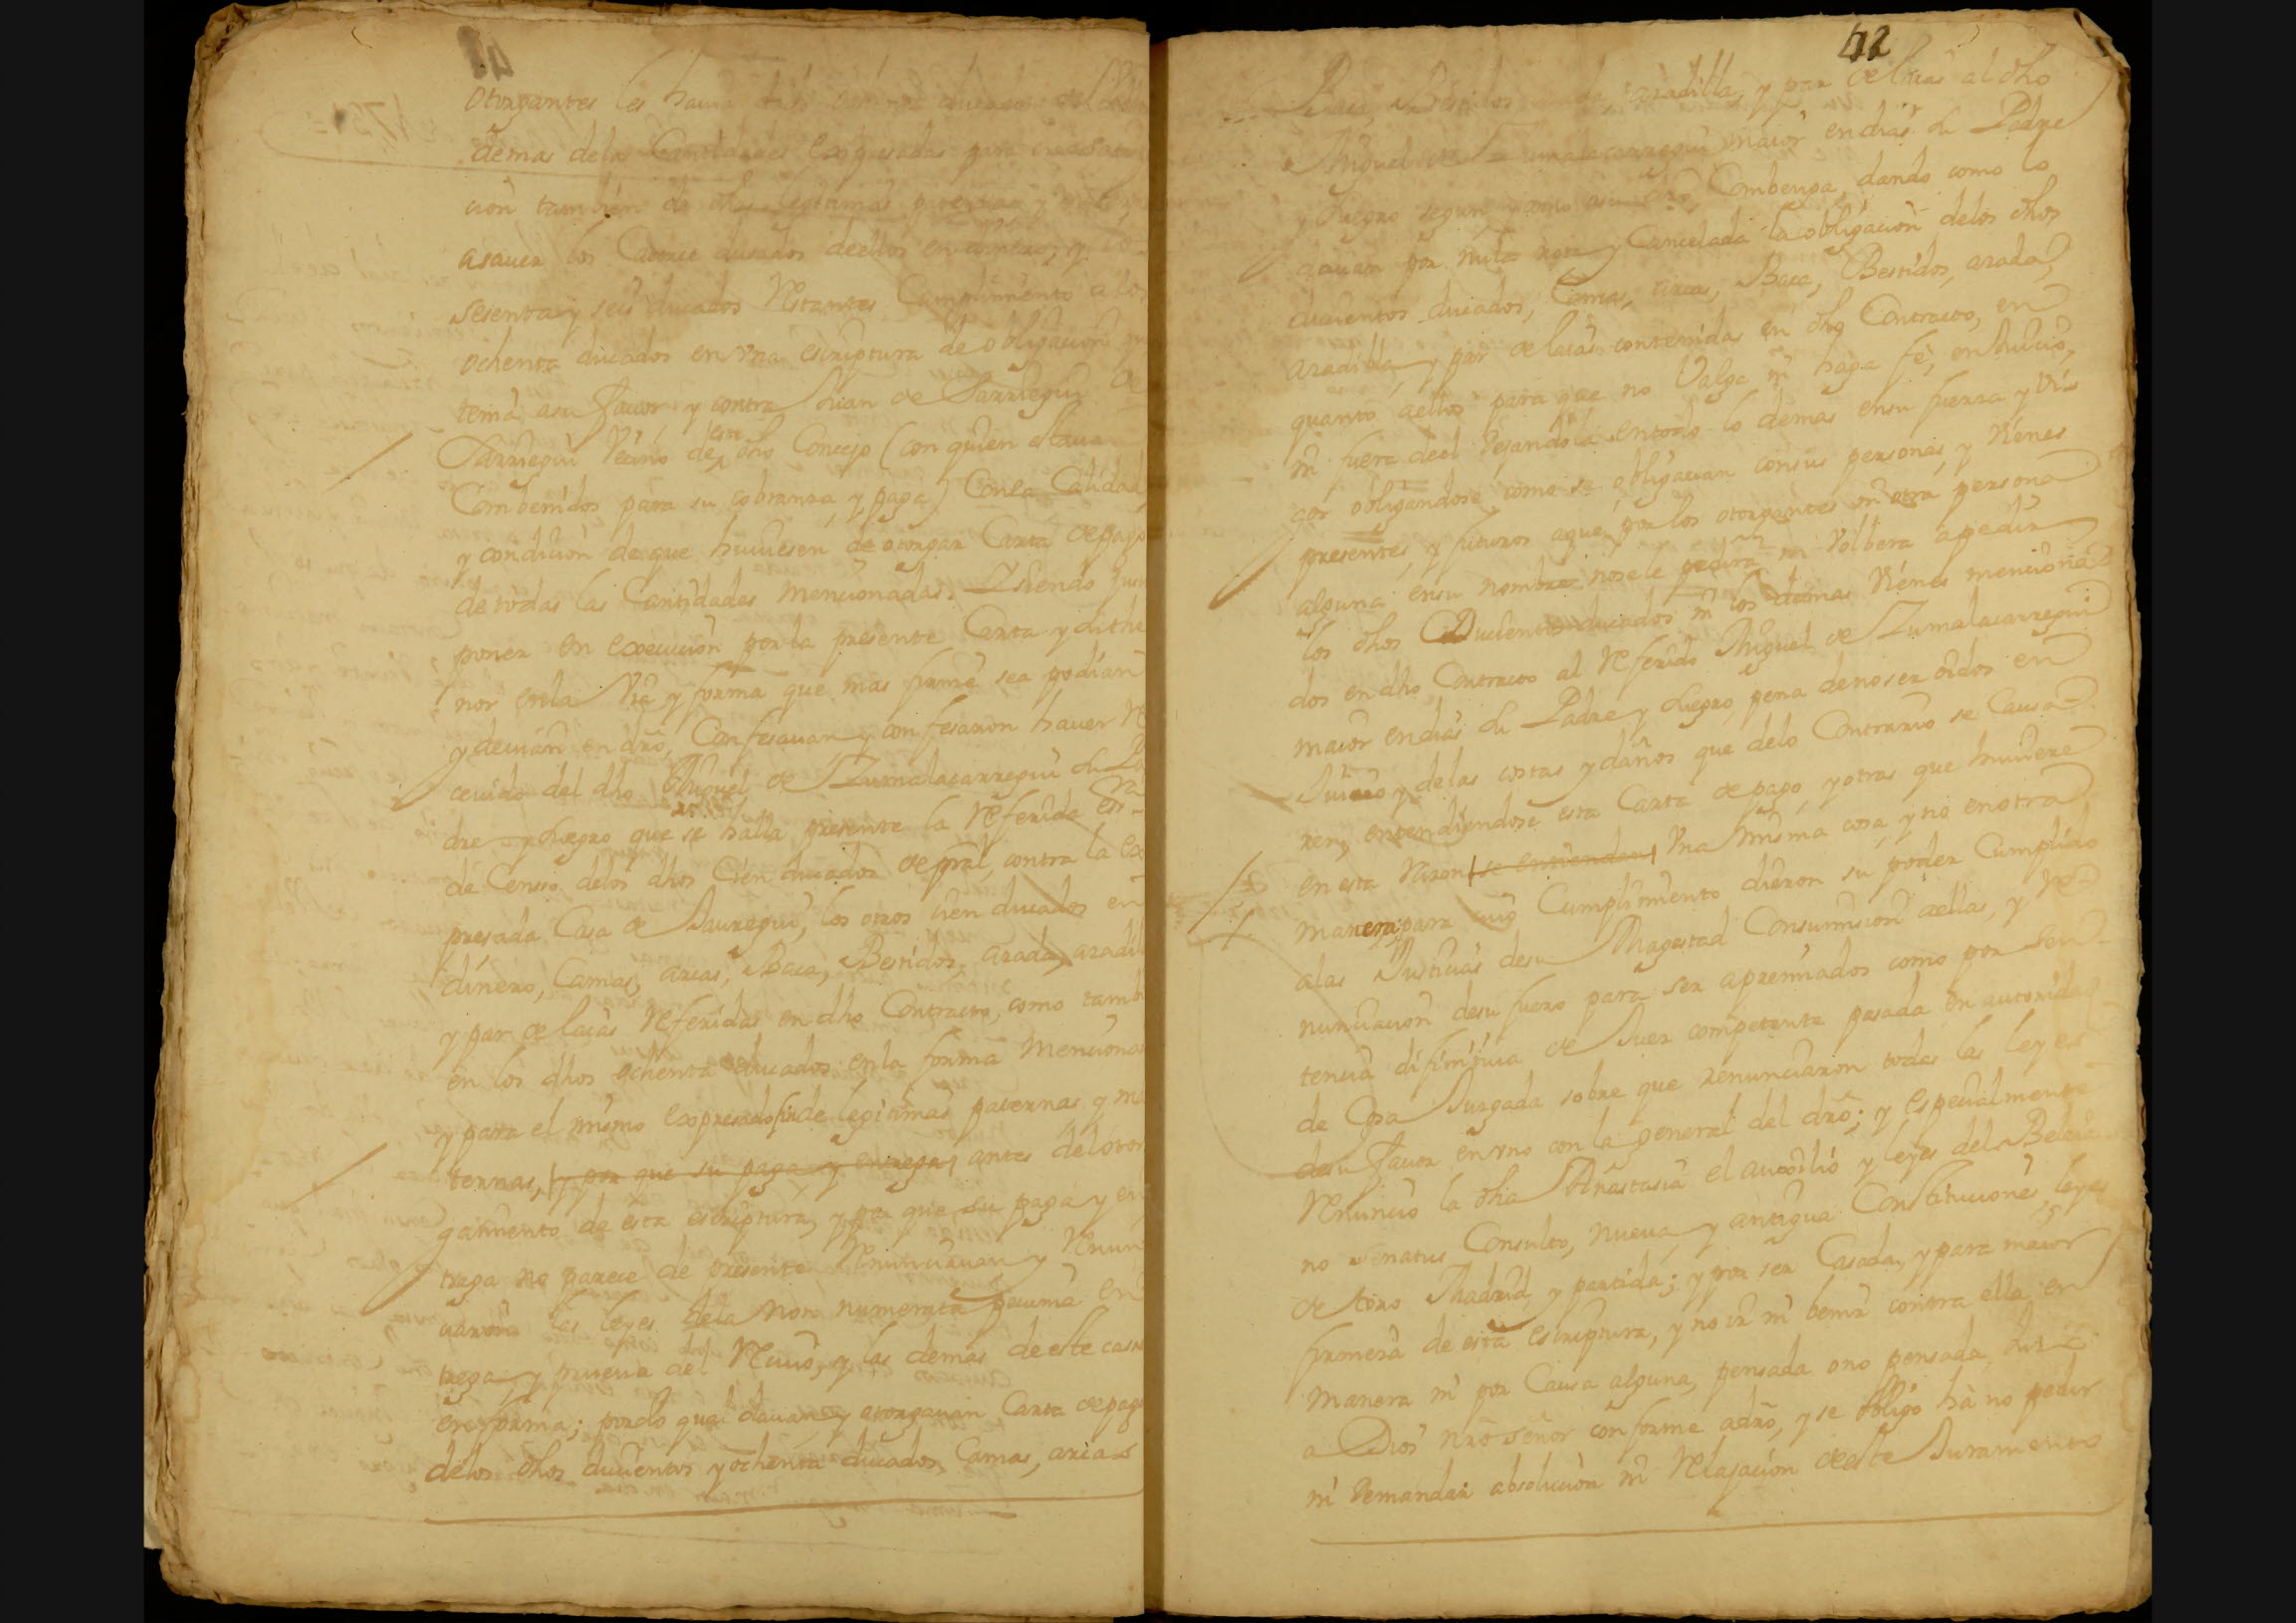 otorgantes les havia
demas dela Cantidades expresadas para
cion tambien de dhas legitimas paternas y
asauer los Catorce ducados deellos en
sesenta y seis ducados Restantes Cumplimiento a los
ochenta ducados en vna escriptura de obligacion
tenia asu fauor y contra Juan de Jarrregui
Jarrregui Vecino de este dho Concejo (con quien estaua
Combenidos para su cobranza, y paga) Conla Calidad,
y condicion de que huuiesen de otorgar Carta de pago
de todas las Cantidades mencionadas. Isiendo
poner en execucion por la presente Carta y
nor enla Via y forma que mas firme sea podian
y deuian en dro, Confesauan y confesaron hauer Re
ceuido del dho Miguel de Zumalacarregui su Pa
dre y suegro que se halla presente la Referida essra
de Censo delos dhos Cien ducados de pral, contra la ex
presada Casa de Jauregui, los otros cien ducados en
dinero, Camas, arcas, Baca, Bestidos, arada, aradil
y par de laias Referidas en dho Contracto, como tamb
en los dhos ochenta ducados enla forma menciona
y para el mismo expresado fin de legitimas paternas y ma
ternas, y por que su paga y entrega, antes del otor
gamiento de esta escriptura, y por que su paga y en
trega no parece de presente Renunciauan y Renun
ciaron las leyes dela non numerata pecunia en
trega y prueua del Reciuo, y las demas de este caso
en forma; por lo qual dauan y otorgauan Carta de pago
delos dhos ducientos y ochenta ducados, Camas, arcas
42
Baca, Bestidos, arada, aradilla, y par de laias al dho
Miguel de Zumalacarregui maior en dias su Padre
y suegro segun y como asu dro Combenga, dando como lo
dauan por nula rota y Cancelada la obligacion delos dhos
ducientos ducados, Camas, arcas, Baca, Bestidos, arada,
aradilla, y par de laias contenidas en dho Contracto, en
quanto aellos para que no Valga ni haga fe, en Juicio,
ni fuera deel dejandola entodo lo demas ensu fuerza y Vi
gor obligandose como se obligauan consus personas, y Vienes
presentes, y futuros aque por los otorgantes ni otra persona
alguna ensu nombre nosele pedira ni Volbera apedir
los dhos Ducientos ducados ni los demas Vienes menciona
dos en dho Contracto al Referido Miguel de Zumalacarregui
maior endias su Padre y suegro, pena de no ser oidos en
Juicio y delas costas y daños que delo Contrario se Causa
ren, entendiendose esta Carta de pago, y otras que huuiere
en esta Razon se entiendan, Vna misma cosa, y no en otra
manera; para cuio Cumplimiento dieron su poder Cumplido
alas Justicias desu Magestad Consumision aellas, y Re
nunciacion desu fuero para ser apremiados como por Sen
tencia difinitiua de Juez competente pasada en autoridad
de Cosa Juzgada sobre que renunciaron todas las leyes
desu fauor en vno con la general del dro; y especialmente
Renuncio la dha Anastasia el auxilio y leyes del Beleia
no Senatus Consulto, nueua y antigua Constituciones leyes
de toro Madrid, y partida; y por ser Casada, y para maior
firmeza de esta escriptura, y no ir ni benir contra ella en
manera ni por Causa alguna, pensada o no pensada, Juro
a Dios nro señor conforme adro, y se obligo hà no pedir
ni demandar absolucion ni Relajacion de este Juramento